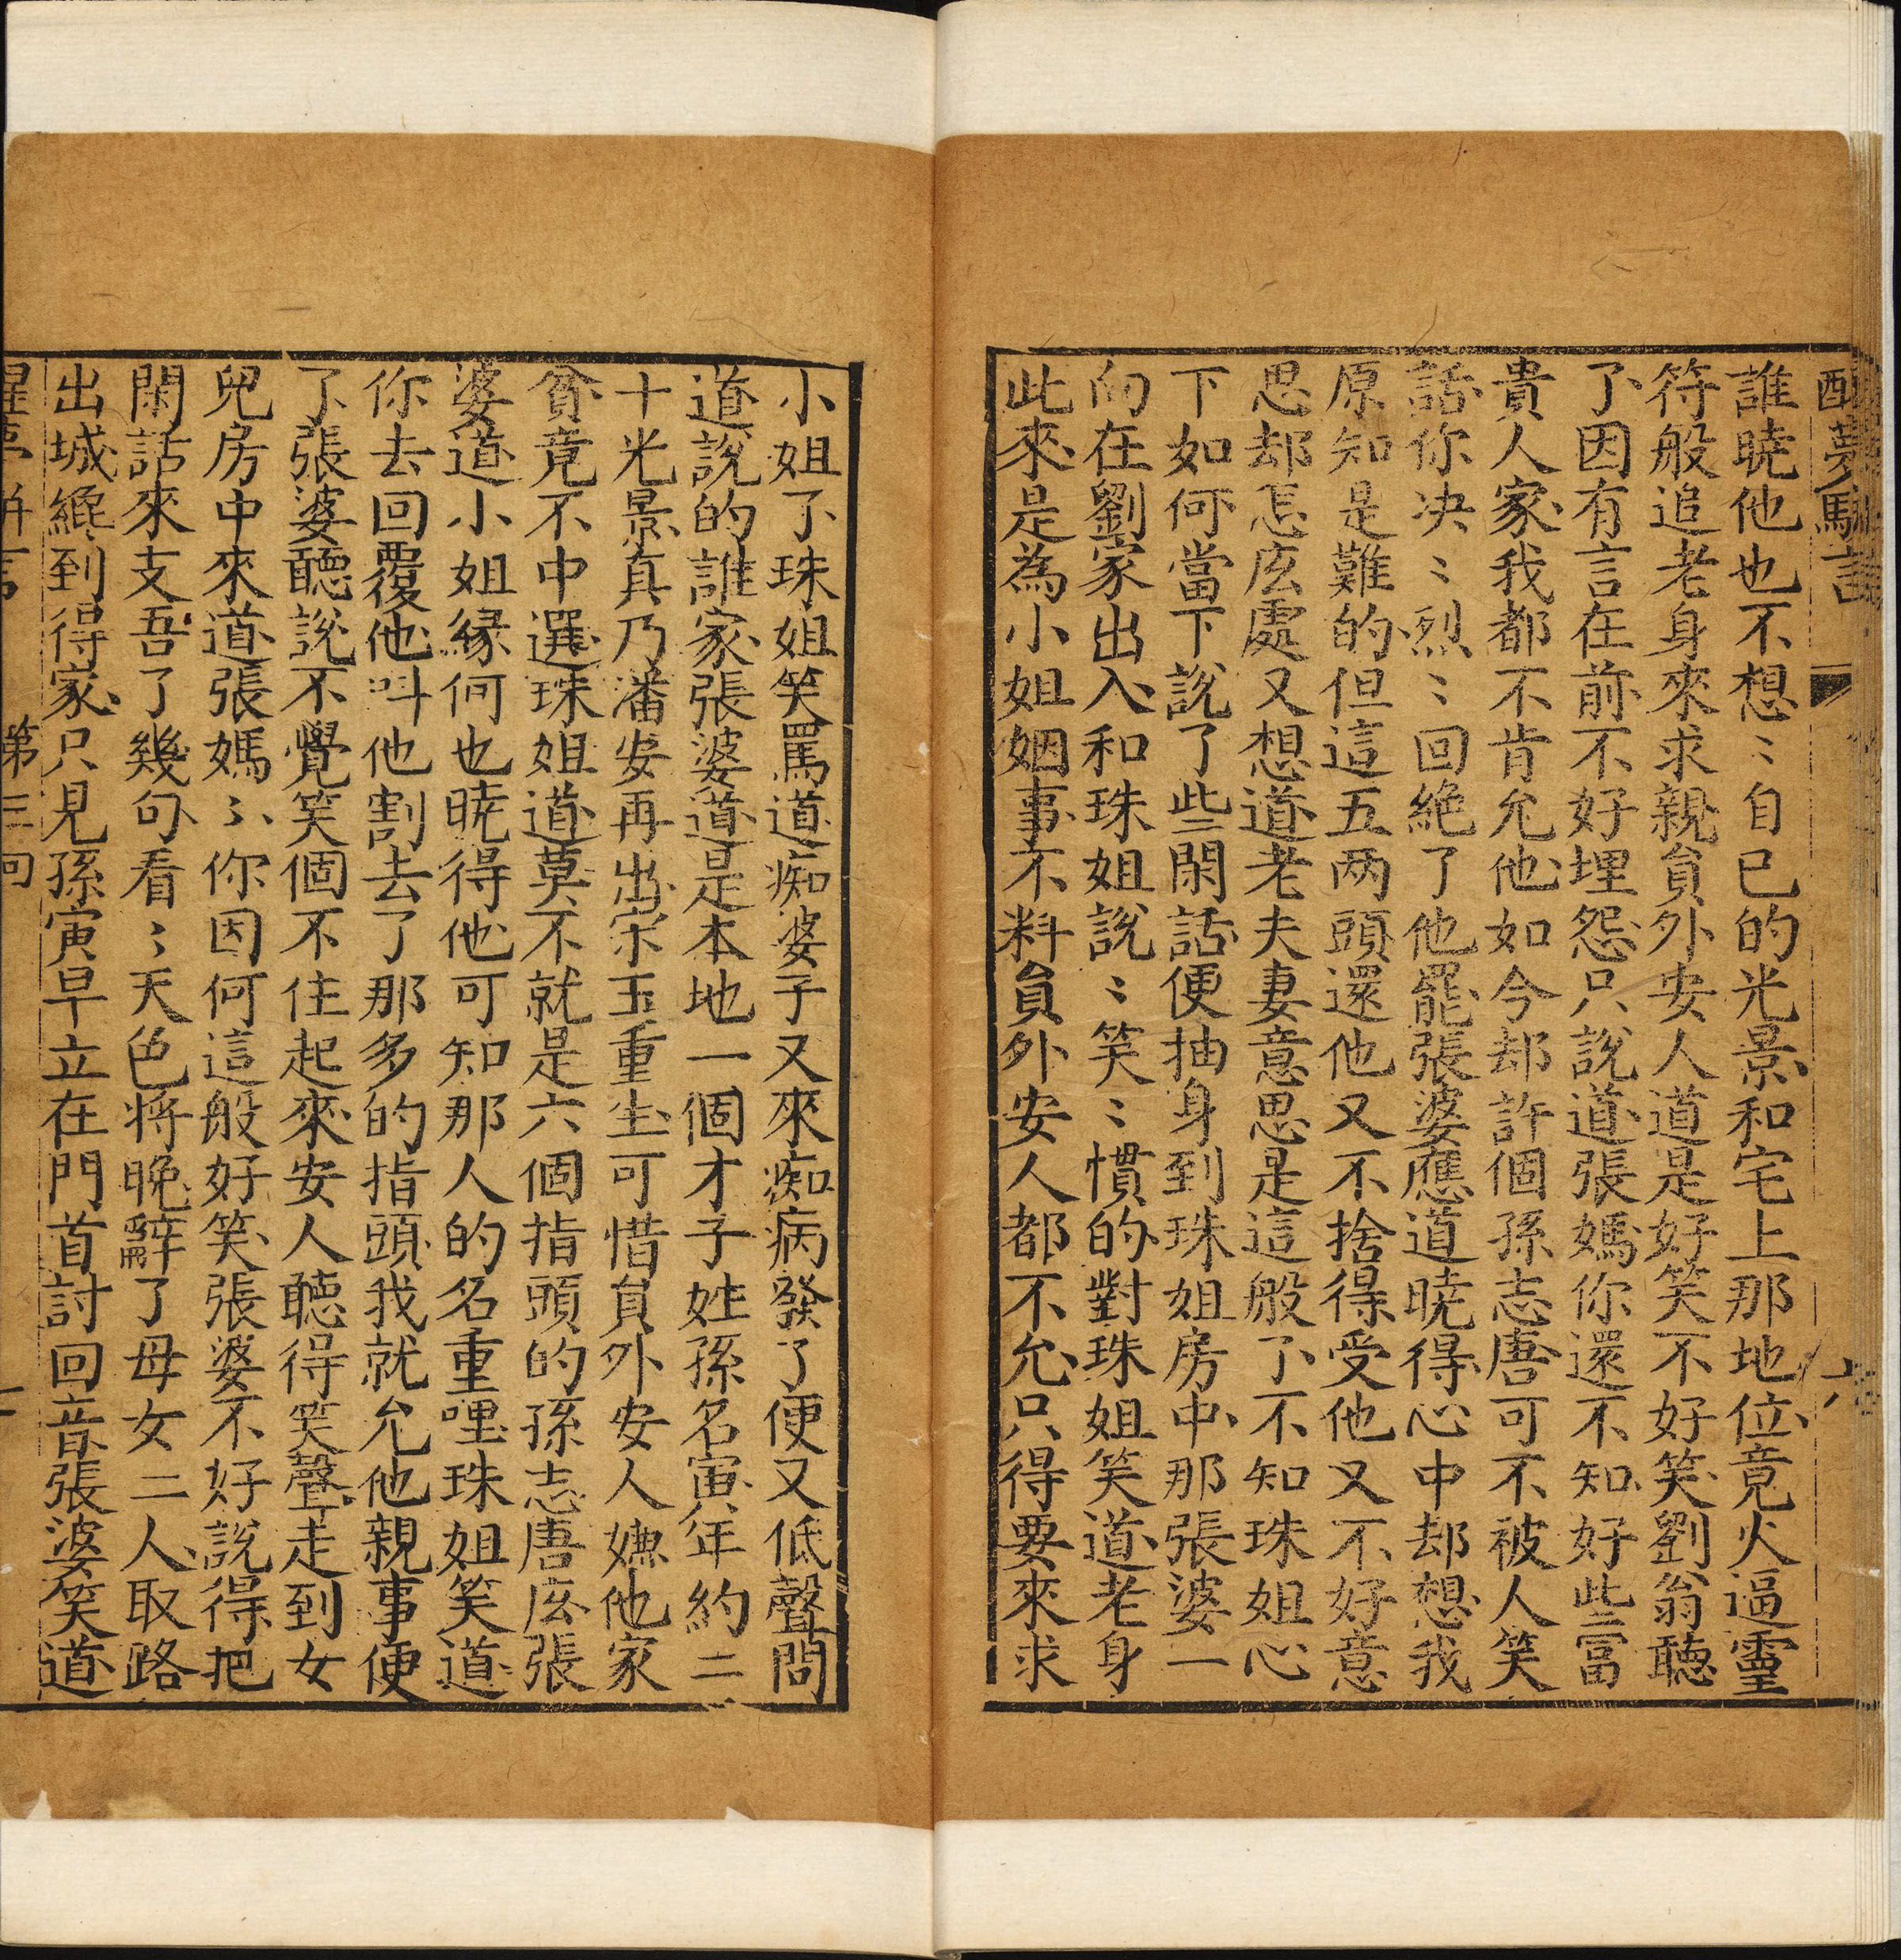 醒夢駢言 六
誰曉他也不想〻自已的光景和宅上那地位竟火逼靈
符般追老身來求親員外安人道是好笑不好笑劉翁聽
了因有言在前不好埋怨只說道張媽你還不知好些冨
貴人家我都不肯允他如今却許個孫志唐可不被人笑
話你决〻烈〻回絶了他罷張婆應道曉得心中却想我
原知是難的但這五两頭還他又不捨得受他又不好意
思却怎庅處又想道老夫妻意思是這般了不知珠姐心
下如何當下說了些閑話便抽身到珠姐房中那張婆一
向在劉家出入和珠姐說〻笑〻慣的對珠姐笑道老身
此來是為小姐姻事不料員外安人都不允只得要來求
小姐了珠姐笑罵道痴婆子又來痴病發了便又低聲問
道說的誰家張婆道是本地一個才子姓孫名寅年約二
十光景真乃潘安再出宋玉重生可惜員外安人嫌他家
貧竟不中選珠姐道莫不就是六個指頭的孫志唐庅張
婆道小姐緣何也曉得他可知那人的名重哩珠姐笑道
你去回覆他呌他割去了那多的指頭我就允他親事便
了張婆聽說不覺笑個不住起來安人聽得笑聲走到女
兒房中來道張媽〻你因何這般好笑張婆不好說得把
閑話來支吾了幾句看〻天色將晚辭了母女二人取路
出城纔到得家只見孫寅早立在門首討回音張婆笑道
醒夢駢言 第三回